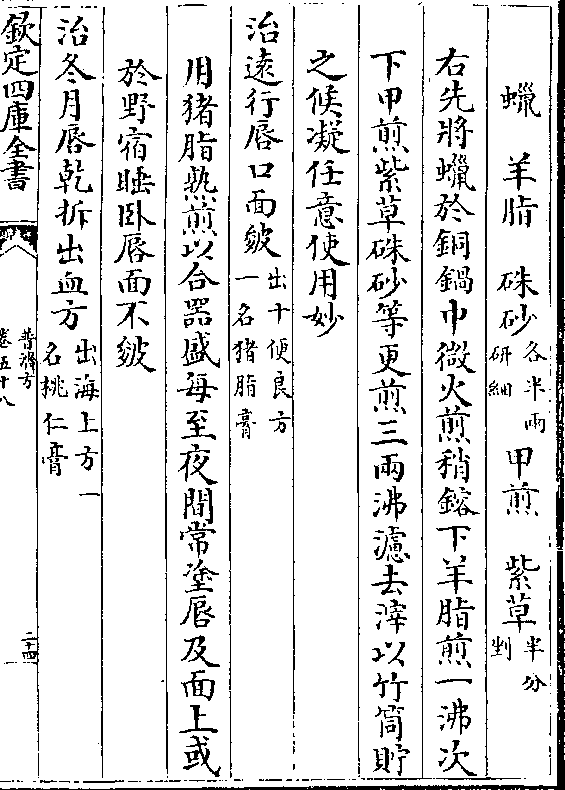 蠟　羊脂　硃砂各半兩研細　甲煎　紫草半分剉
右先將蠟於銅鍋中微火煎稍鎔下羊脂煎一沸次
下甲煎紫草硃砂等更煎三兩沸濾去滓以竹筒貯
之候凝任意使用妙
治逺行唇口面皴出十便良方一名猪脂膏
用猪脂熟煎以合器盛每至夜間常塗唇及面上或
於野宿睡卧唇面不皴
治冬月唇乾拆出血方出海上方一名桃仁膏
欽定四庫全書
普濟方
卷五十八
二十四